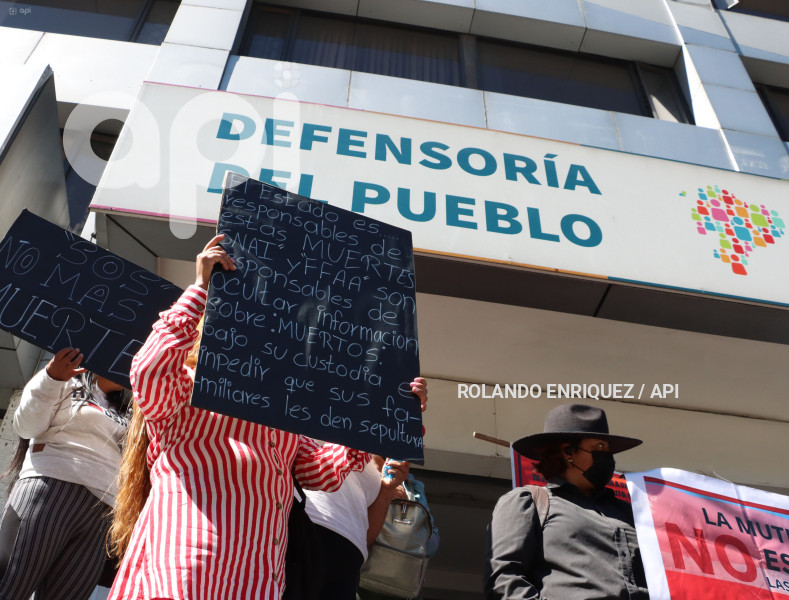 api
api
DEFENSORÍA
DEL PUEBLO
SOS
NO MAS
MUERTE
Estado es
responsables de
estas MUERTES
"NAT" y FFAA" son
responsables de
ocultar informacion
sobre: MUERTOS;
bajo su custodia e
inpedir que sus fa-
miliares les den sepultura
ROLANDO ENRIQUEZ / API
LA MUTI
NO ES
LAS